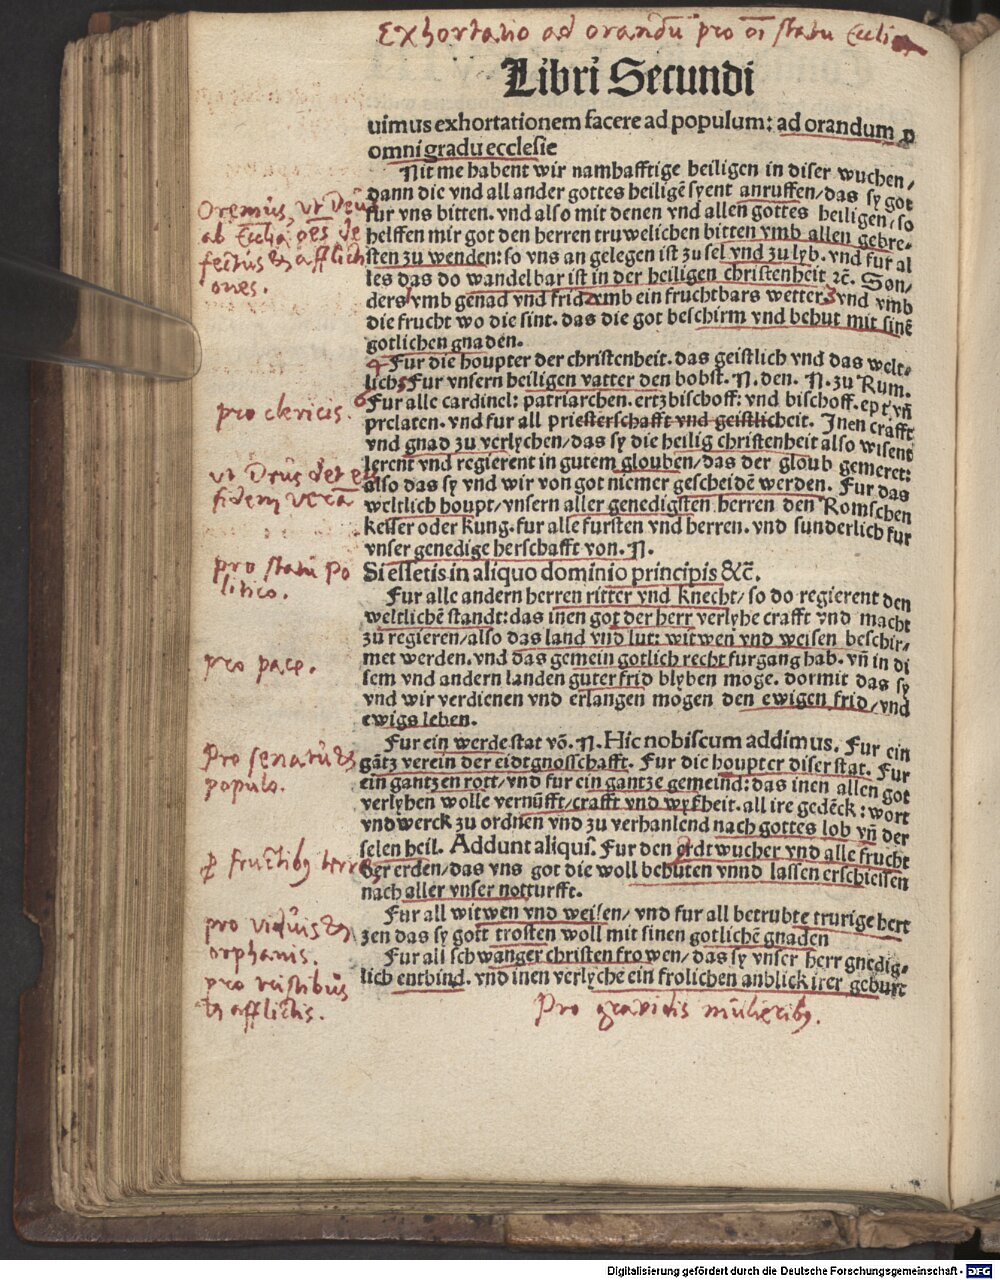 Exhortatio ad orandū pro oī statu Eccliæ
Libri Secundi
uimus exhortationem facere ad populum: ad orandum ꝓ
omni gradu ecclesie
Nit me habent wir namhafftige heiligen in diser wuchen/
dann die vnd all ander gottes heiligē syent anruffen/das sy got
fur vns bitten. vnd also mit denen vnd allen gottes heiligen/so
helffen mir got den herren truwelichen bitten vmb allen gebre-
sten zu wenden: so vns an gelegen ist zu sel vnd zu lyb. vnd fur al
les das do wandelbar ist in der heiligen christenheit ⁊c̄. Son/
ders 1 vmb genad vnd frid 2 vmb ein fruchtbars wetter 3 vnd vmb
die frucht wo die sint. das die got beschirm vnd behut mit sinē
gotlichen gnaden.
4 Fur die houpter der christenheit. das geistlich vnd das welt-
lich 5 Fur vnsern heiligen vatter den bobst. N. den. N. zu Rum.
6 Fur alle cardinel: patriarchen. ertzbischoff: vnd bischoff. ept vn̄
prelaten. vnd fur all priesterschafft vnd geistlicheit. Inen crafft
vnd gnad zu verlychen/das sy die heilig christenheit also wisent
lerent vnd regierent in gutem glouben/das der gloub gemeret:
also das sy vnd wir von got niemer gescheidē werden. Fur das
weltlich houpt/vnsern aller genedigsten herren den Romschen
Keiser oder Kung. fur alle fursten vnd herren. vnd sunderlich fur
vnser genedige herschafft von. N.
Si essetis in aliquo dominio principis &c̄.
Fur alle andern herren ritter vnd Knecht/so do regierent den
weltlichē standt: das inen got der herr verlyhe crafft vnd macht
zu regieren/also das land vnd lut: witwen vnd weisen beschir-
met werden. vnd das gemein gotlich recht furgang hab. vn̄ in di
sem vnd andern landen guter frid blyben moge. dormit das sy
vnd wir verdienen vnd erlangen mogen den ewigen frid/vnd
ewigs leben.
Fur ein werde stat vō. N. Hic nobiscum addimus. Fur ein
gātz verein der eidtgnosschafft. Fur die houpter diser stat. Fur
ein gantzen rott/vnd fur ein gantze gemeind: das inen allen got
verlyhen wolle vernūfft/crafft vnd wyßheit. all ire gedēck: wort
vnd werck zu ordnen vnd zu verhanlend nach gottes lob vn̄ der
selen heil. Addunt aliqui. Fur den erdtwucher vnd alle frucht
der erden/das vns got die woll behuten vnnd lassen erschiessen
nach aller vnser notturfft.
Fur all witwen vnd weisen/ vnd fur all betrubte trurige hert
zen das sy gott trosten woll mit sinen gotlichē gnaden
Fur all schwanger christen frowen/das sy vnser herr gnedig-
lich entbind. vnd inen verlyche ein frolichen anblick irer geburt
Oremus, vt Deus
ab Ecclia oēs de
fectus & afflicti
ones.
pro clericis.
vt Dn̄s det
fidem verā
pro statu po
litico.
pro pace.
Pro senatu &
populo.
ꝓ fructibꝰ terre
pro viduis &
orphanis.
pro tristibus
& afflictis.
Pro gravidis mulieribꝰ.
Digitalisierung gefördert durch die Deutsche Forschungsgemeinschaft - DFG